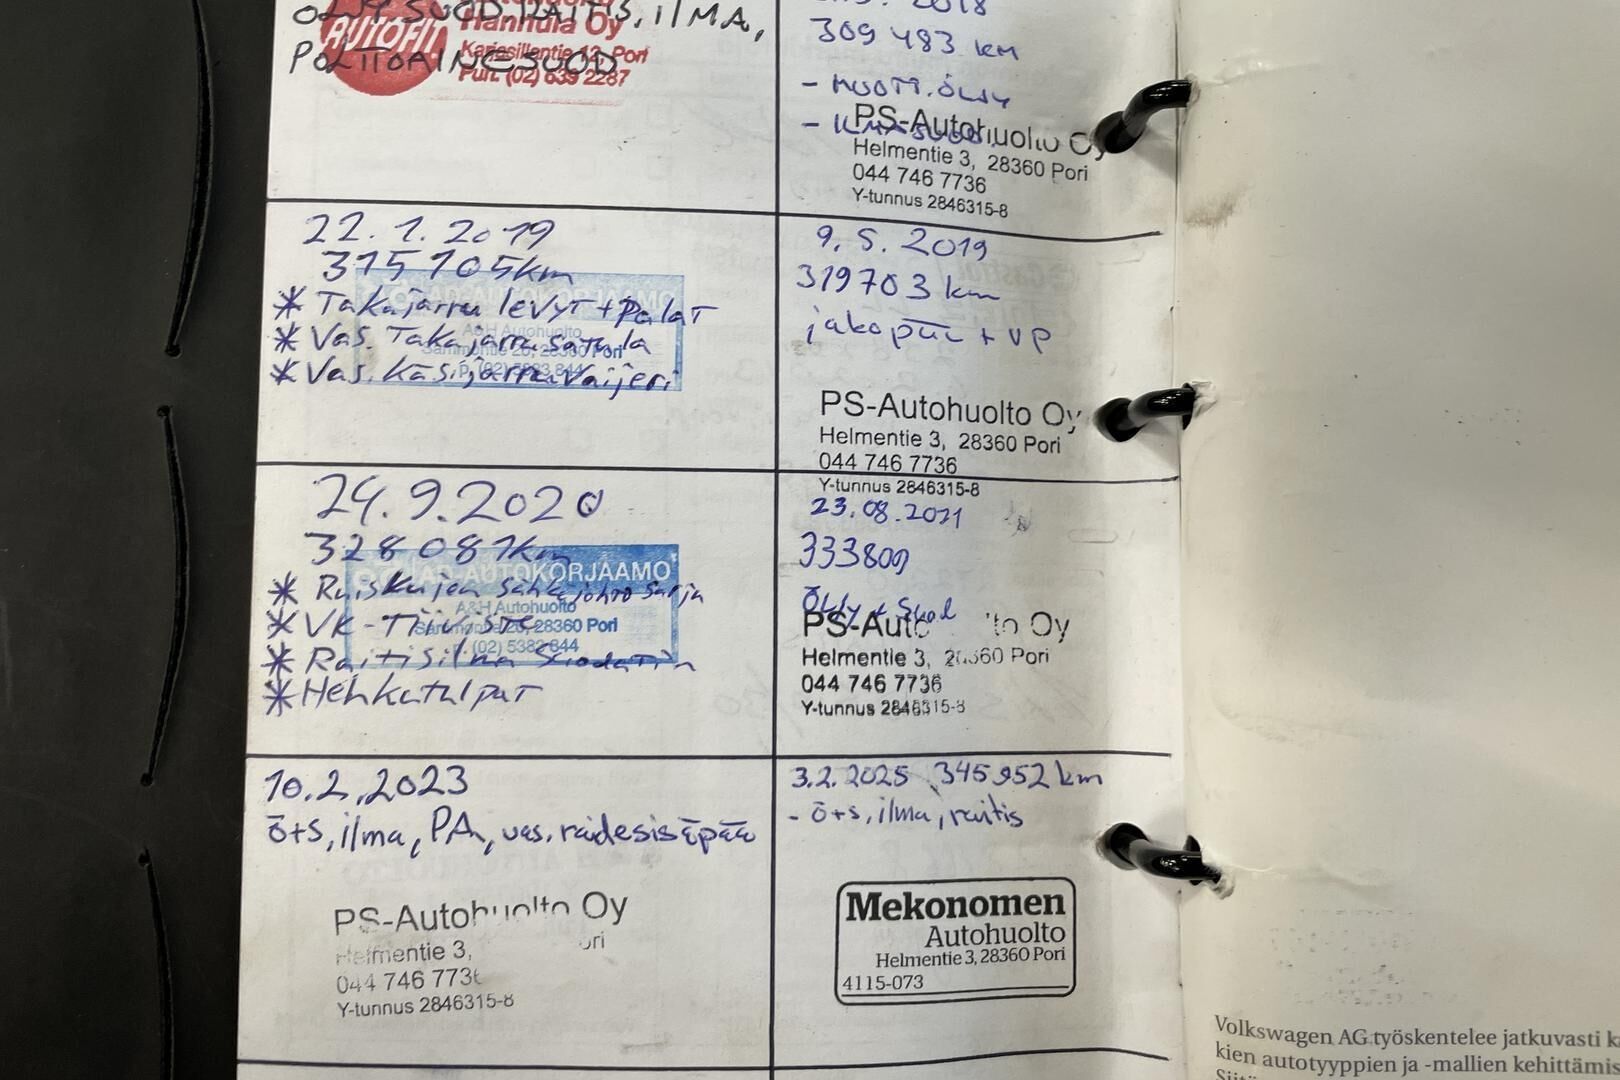 ÖLJYSUOD, RAITIS, ILMA,
POLTTOAINESUOD
AUTOFIT
Hannula Oy
Karjasillantie 13, Pori
Puh. (02) 639 2287
2018
309 483 km
- MOOTT.ÖLJY
- ILMASUOD.
PS-Autohuolto Oy
Helmentie 3, 28360 Pori
044 746 7736
Y-tunnus 2846315-8
22.1.2019
315 105km
* Takajarru levyt + palat
* Vas. Takajarrusatula
* Vas. Käsijarruvaijeri
A&H Autohuolto
28360 Pori
9.5.2019
319703 km
jakopää + VP
PS-Autohuolto Oy
Helmentie 3, 28360 Pori
044 746 7736
Y-tunnus 2846315-8
24.9.2020
328 081km
* Ruiskujen sähköjohtosarja
* VK-Tiiviste
* Raitisilma Suodatin
* Hehkutulpat
AD-AUTOKORJAAMO
A&H Autohuolto
Sammontie 20, 28360 Pori
(02) 5382 844
23.08.2021
333800
Öljy + Suod
PS-Auto to Oy
Helmentie 3, 28360 Pori
044 746 7736
Y-tunnus 2846315-8
10.2.2023
ö+s, ilma, PA, vas. raidesisäpää
PS-Autohuolto Oy
Helmentie 3, ori
044 746 7736
Y-tunnus 2846315-8
3.2.2025 345952 km
- ö+s, ilma, raitis
Mekonomen
Autohuolto
Helmentie 3, 28360 Pori
4115-073
Volkswagen AG työskentelee jatkuvasti
kien autotyyppien ja -mallien kehittämis